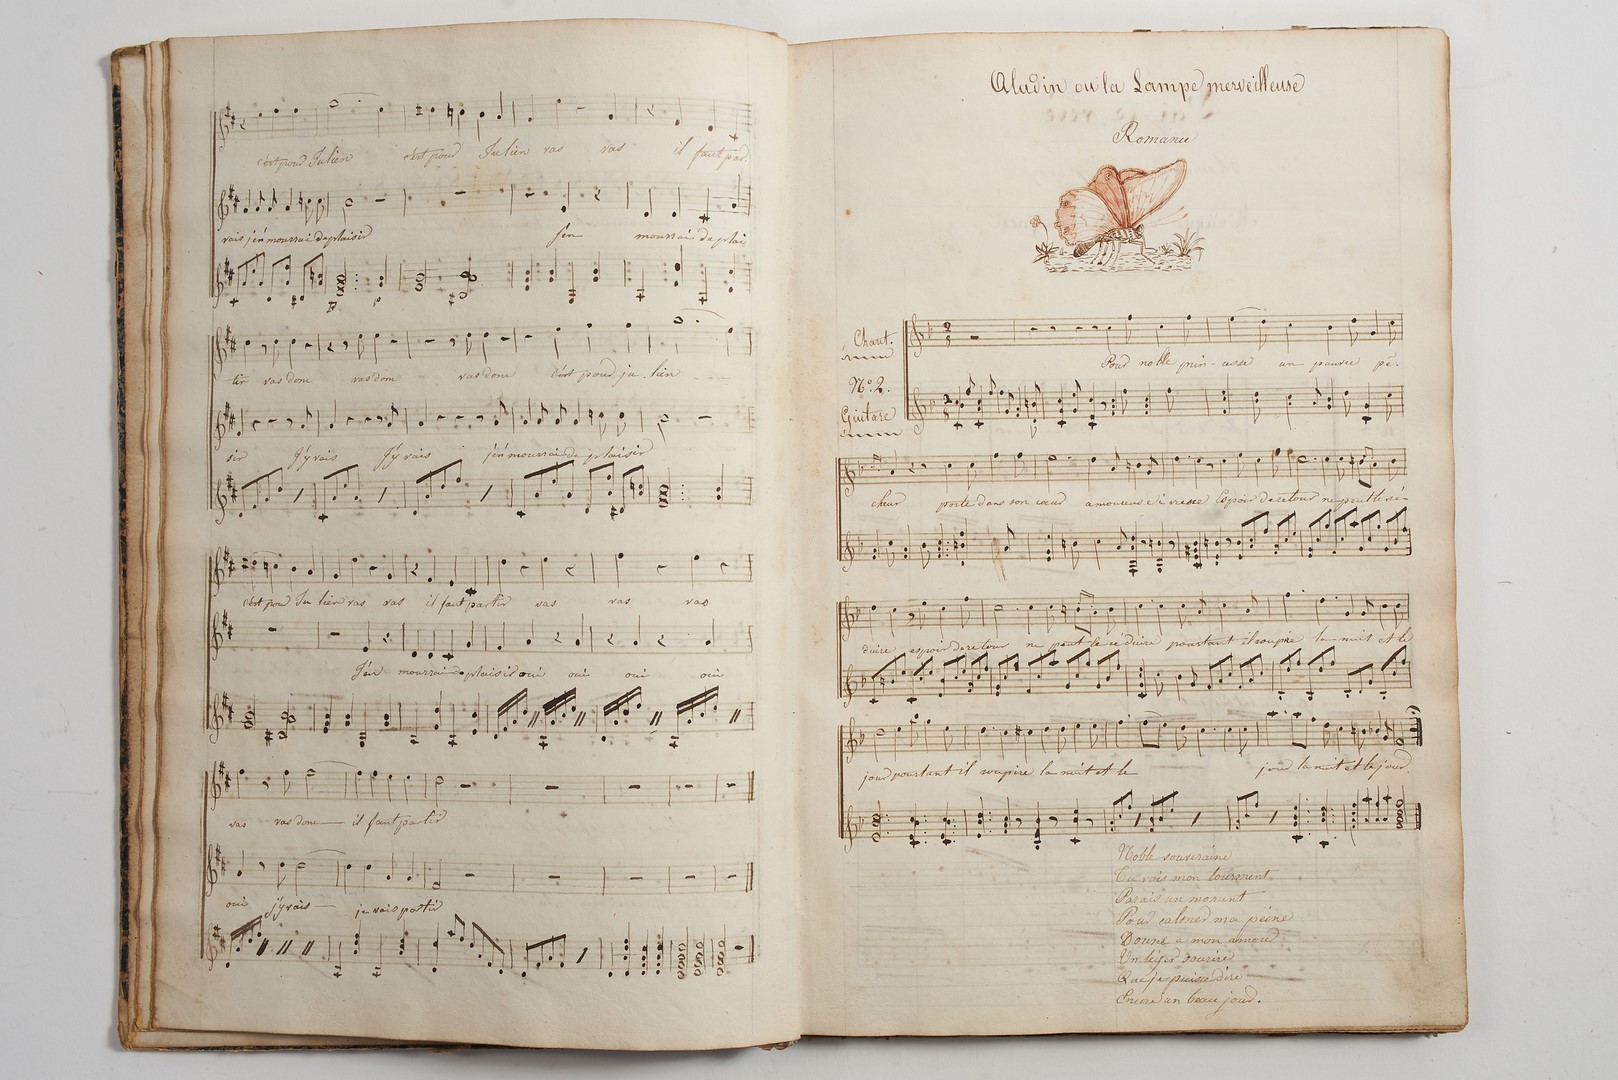 c'est pour Julien c'est pour Julien vas vas il faut par
vais j'en mourrai de plaisir j'en mourrai de plai
tir vas donc vas donc vas donc c'est pour ju lien
sir J'y vais J'y vais j'en mourrai de plaisir
c'est pour Ju lien vas vas il faut partir vas vas vas
J'en mourrai de plaisir oui oui oui oui
vas vas donc il faut partir
oui j'y vais je vais partir
Aladin ou la Lampe merveilleuse
Romance
Chant.
Pour noble prin-cesse un pauvre pê-
No. 2.
Guitare
cheur porte dans son cœur amoureuse ivresse Espoir de retour ne peut le sé-
duire espoir de retour ne peut le séduire pourtant il soupire la nuit et le
jour pourtant il soupire la nuit et le jour la nuit et le jour.
Noble souveraine
Tu vois mon tourment
Parais un moment
Pour calmer ma peine
Donne a mon amour
Un léger sourire
Que je puisse dire
Encore un beau jour.